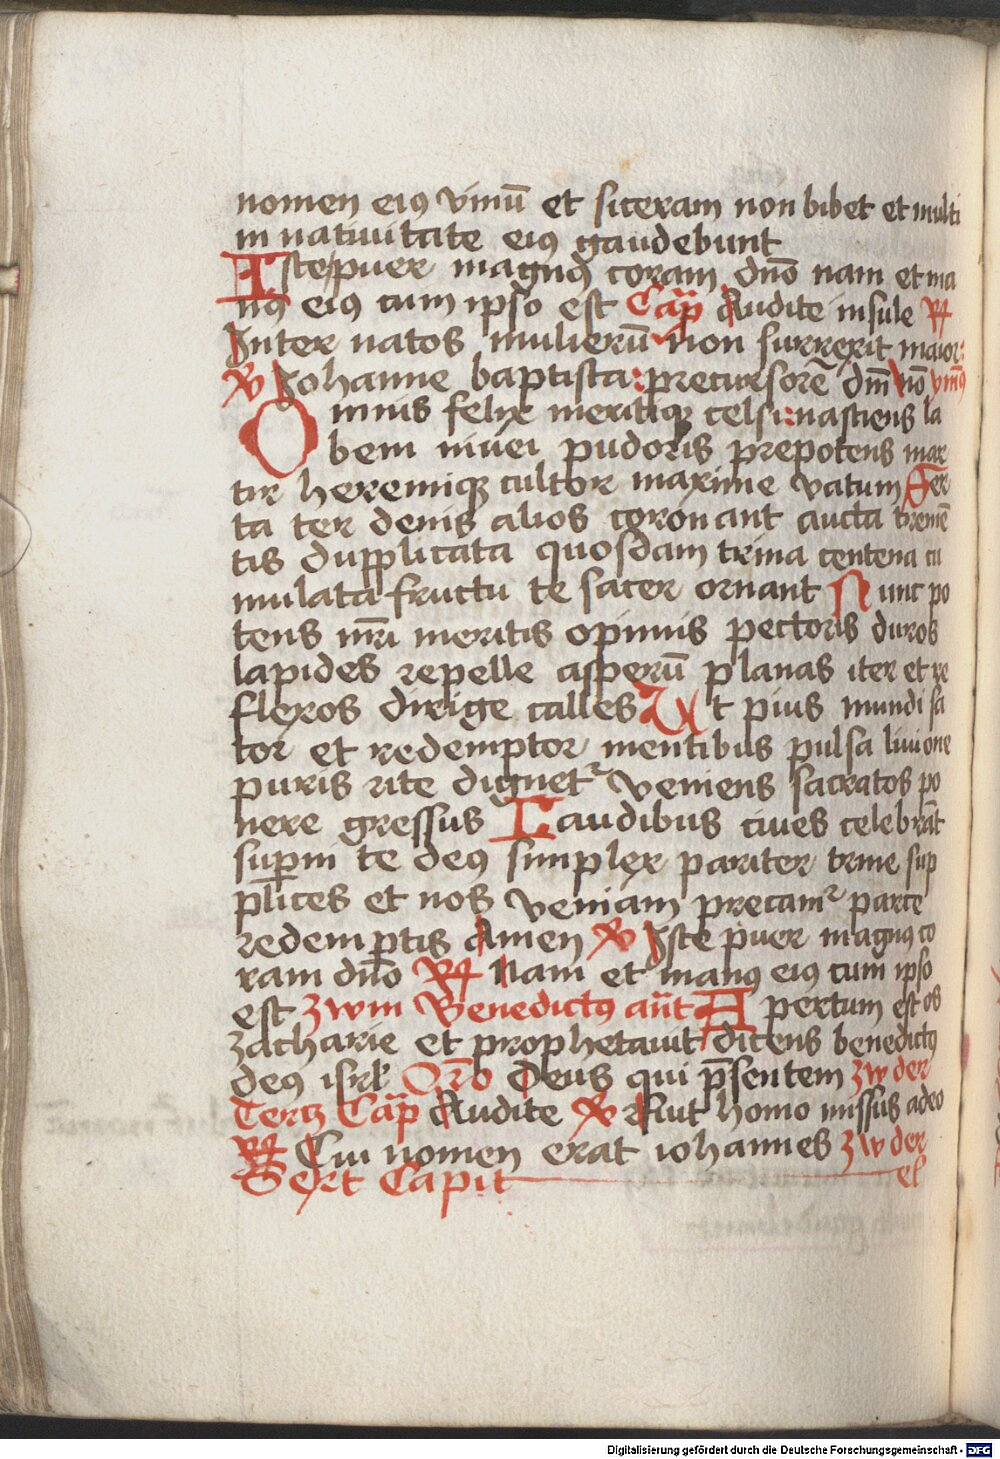 nomen eius vinū et siceram non bibet et multi
in natiuitate eius gaudebunt
Iste puer magnus coram dn̄o nam et ma
nus eius cum ipso est Cap̄ Audite insule R
Inter natos mulierū non surrexit maior:
V Johanne baptista: precursorē dm̄ nō ymꝰ
O nimis felix meritiqꝫ celsi: nesciens la
bem niuei pudoris prepotens mar
tir heremiqꝫ cultor maxime vatum Ser
ta ter denis alios coronant aucta cremē
tis dupplicata quosdam trina centena cu
mulata fructu te sacer ornant Nunc po
tens nr̄i meritis opimis pectoris duros
lapides repelle asperū planas iter et re
flexos dirige calles Ut pius mundi sa
tor et redemptor mentibus pulsa liuione
puris rite dignetr veniens sacratos po
nere gressus Laudibus ciues celebrāt
sup̄ni te deus simplex pariter trine sup
plices et nos veniam precamr parce
redemptis Amen V Iste puer magnus co
ram dn̄o R Nam et manus eius cum ipso
est zwm Benedictus an̄t Apertum est os
zacharie et prophetauit dicens benedictus
deus isrl Or̄o Deus qui p̄sentem zw der
Tertz Cap̄ Audite V Fiut homo missus adeo
R Cui nomen erat iohannes zw der
Sext Capit el
Digitalisierung gefördert durch die Deutsche Forschungsgemeinschaft - DFG